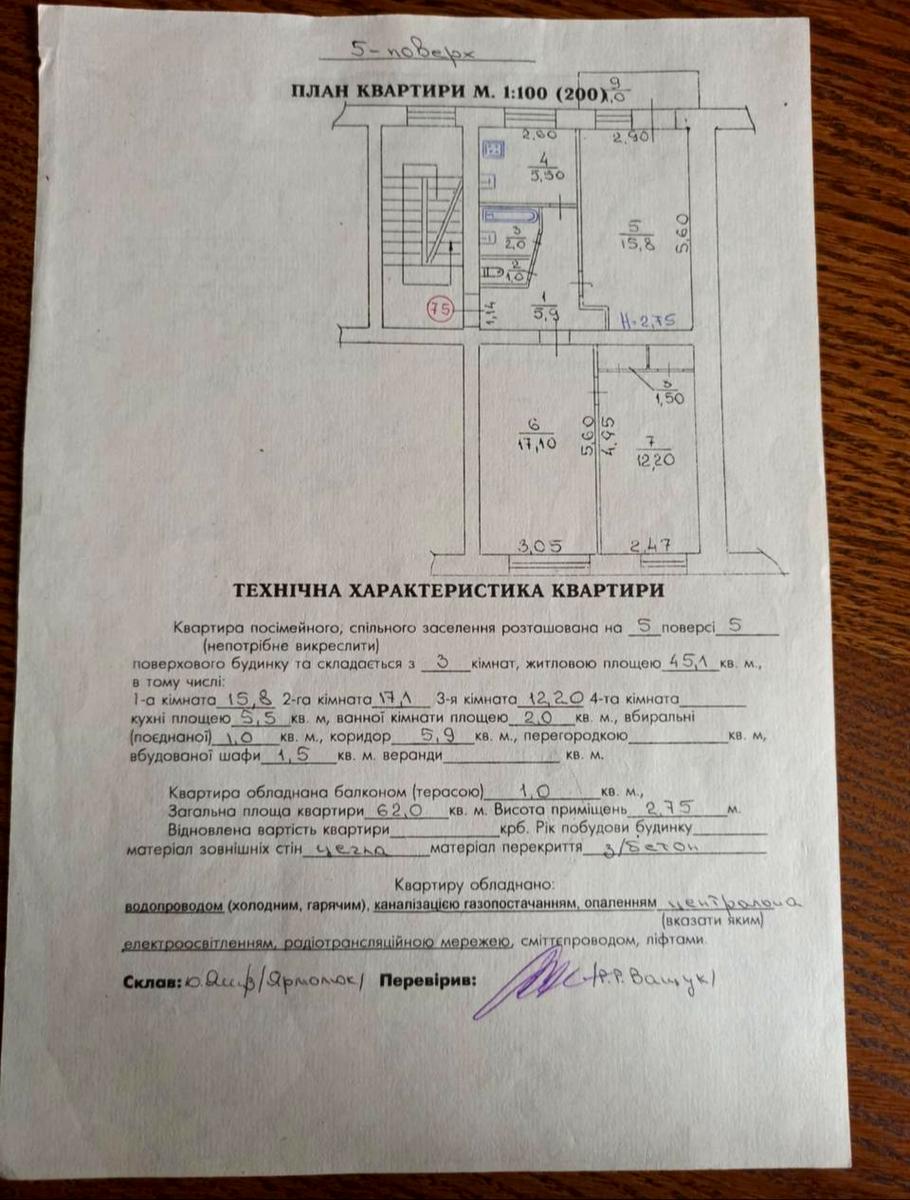 5-поверх
ПЛАН КВАРТИРИ М. 1:100 (200)
9
1,0
2,60
2,90
4
5,50
5
15,8
5,60
3
2,0
2
1,0
75
1,14
1
5,9
H-2,75
1,50
6
17,10
5,60
4,95
7
12,20
3,05
2,47
ТЕХНІЧНА ХАРАКТЕРИСТИКА КВАРТИРИ
Квартира посімейного, спільного заселення розташована на 5 поверсі 5
(непотрібне викреслити)
поверхового будинку та складається з 3 кімнат, житловою площею 45,1 кв. м.,
в тому числі:
1-а кімната 15,8 2-га кімната 17,1 3-я кімната 12,20 4-та кімната
кухні площею 5,5 кв. м, ванної кімнати площею 2,0 кв. м., вбиральні
(поєднаної) 1,0 кв. м., коридор 5,9 кв. м., перегородкою кв. м,
вбудованої шафи 1,5 кв. м. веранди кв. м.
Квартира обладнана балконом (терасою) 1,0 кв. м.,
Загальна площа квартири 62,0 кв. м. Висота приміщень 2,75 м.
Відновлена вартість квартири крб. Рік побудови будинку
матеріал зовнішніх стін цегла матеріал перекриття з/бетон
Квартиру обладнано:
водопроводом (холодним, гарячим), каналізацією газопостачанням, опаленням центральна
(вказати яким)
електроосвітленням, радіотрансляційною мережею, сміттєпроводом, ліфтами
Склав: /Ярмолюк/ Перевірив: /Р.Р. Ващук/